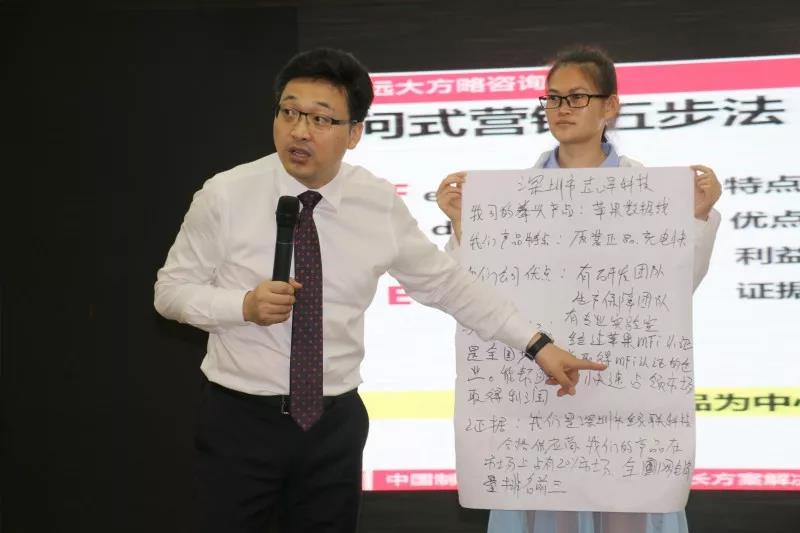 远大方略咨询
问式营销五步法
F
特点
优点
利益
证据
品为中心
中国制
长方案解决
深圳市
科技
我司的拳头产品：苹果数据线
我们产品特点：质量正品.充电快
们公司优点：有研发团队
生产保障团队
有专业实验室
经过苹果MFi认证
是全国
取得MFi认证的企
业。能帮
快速占领市场
取得利润
证据：我们是深圳市绿联科技
合格供应商 我们的产品在
市场上占有20%市场.全国网销
量排名前三